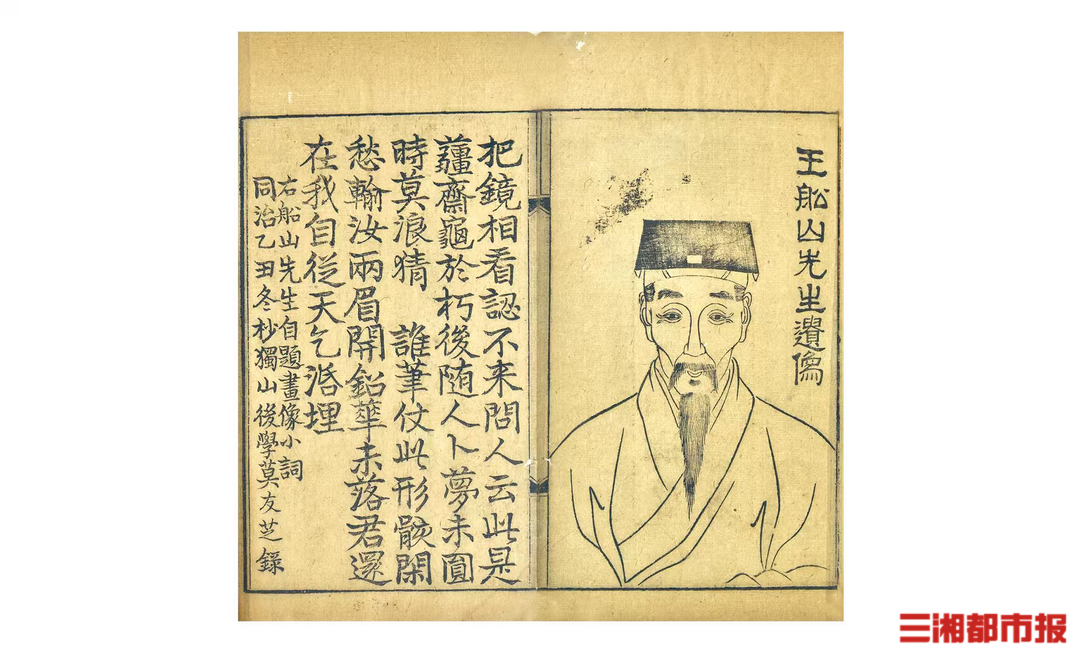 王船山先生遺像
把鏡相看認不来問人云此是
薑齋龜於朽後随人卜夢未圓
時莫浪猜 誰筆仗此形骸閑
愁輸汝兩眉開鉛華未落君還
在我自從天乞活埋
右船山先生自題畫像小詞
同治乙丑冬杪獨山後學莫友芝録
三湘都市报